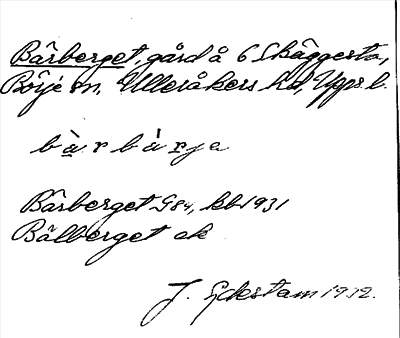 Bärberget, gård å 6 Skäggesta,
Börje sn. Ulleråkers hd, Upps. l.
bàrbárje
Bärberget G84, kb 1931
Bälberget ek
J. Eckstam 1932.